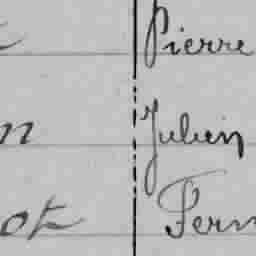 Pierre
n Julien
ot Fern